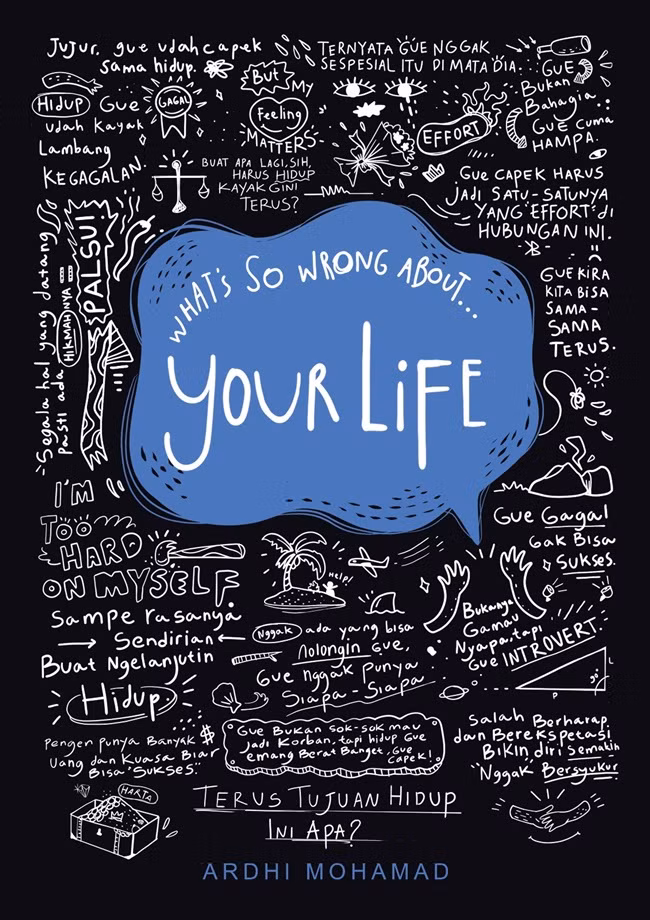 Jujur, gue udah capek
sama hidup.
But
My
feeling
MATTERS
TERNYATA GUE NGGAK
SESPESIAL ITU DI MATA DIA.
GUE
Bukan
Bahagia
GUE cuma
HAMPA.
HIDUP Gue
udah Kayak
Lambang
KEGAGALAN.
GAGAL
BUAT APA LAGI, SIH,
HARUS HIDUP
KAYAK GINI
TERUS?
EFFORT
GUE CAPEK HARUS
JADI SATU-SATUNYA
YANG EFFORT di
HUBUNGAN INI.
Segala hal yang datang
pasti ada HIKMAHNYA
PALSU!
WHAT'S SO WRONG ABOUT...
YOUR LIFE
GUE KIRA
KITA BISA
SAMA-
SAMA
TERUS.
I'M
TOO
HARD
ON MYSELF
Gue Gagal
Gak Bisa
Sukses.
HELP!
Sampe rasanya
Sendirian
Buat Ngelanjutin
Hidup.
Nggak ada yang bisa
nolongin Gue,
Gue nggak punya
Siapa-Siapa
Bukanya
Gamau
Nyapa, tapi
Gue INTROVERT.
Pengen punya Banyak $
Uang dan Kuasa Biar
Bisa "Sukses."
HARTA
Gue Bukan sok-sok mau
Jadi Korban, tapi hidup Gue
emang Berat Banget, Gue
capek!
Salah Berharap
dan Berekspetasi
Bikin diri Semakin
Nggak Bersyukur
TERUS TUJUAN HIDUP
INI APA?
ARDHI MOHAMAD